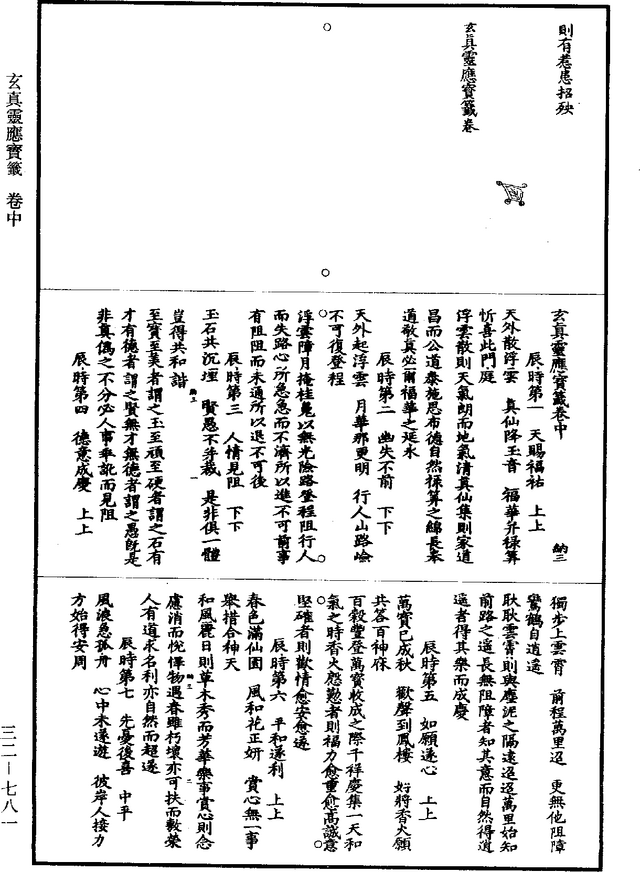 則有惹患招殃
玄真靈應寶籤卷
玄真靈應寶籤卷中
納三
辰時第一　天賜福祐　上上
天外散浮雲　真仙降玉音　福華并祿筭
忻喜此門庭
浮雲散則天氣朗而地氣清真仙集則家道
昌而公道泰施恩布德自然祿筭之綿長奉
道敬真必爾福華之延永
辰時第二　幽失不前　下下
天外起浮雲　月華那更明　行人山路嶮
不可復登程
浮雲障月掩桂魄以無光險路登程阻行人
而失路心所急急而不濟所以進不可前事
有阻阻而未通所以退不可後
辰時第三　人情見阻　下下
玉石共沉埋　賢愚不并裁　是非俱一體
豈得共和諧
至寶至美者謂之玉至頑至硬者謂之石有
才有德者謂之賢無才無德者謂之愚旣是
非真偽之不分必人事乖訛而見阻
辰時第四　德意成慶　上上
獨步上雲霄　前程萬里迢　更無他阻障
鸞鶴自逍遙
耿耿雲霄則與塵泥之隔遠迢迢萬里始知
前路之遙長無阻障者知其意而自然得逍
遙者得其樂而成慶
辰時第五　如願遂心　上上
萬寶已成秋　歡聲到鳳樓　好將香火願
共荅百神庥
百穀豐登萬寶收成之際千祥慶集一天和
氣之時香火慇懃者則福力愈重愈高誠意
堅確者則歡情愈安愈遂
辰時第六　平和遂利　上上
春色滿仙園　風和花正妍　賞心無一事
舉措合神天
和風麗日則草木秀而芳華樂事賞心則念
慮消而悅懌物遇春雖朽壞亦可扶而敷榮
人有道求名利亦自然而超遂
辰時第七　先憂後喜　中平
風浪急孤舟　心中未遂遊　彼岸人接力
方始得安周
玄真靈應寶籤　卷中
三二—七八一